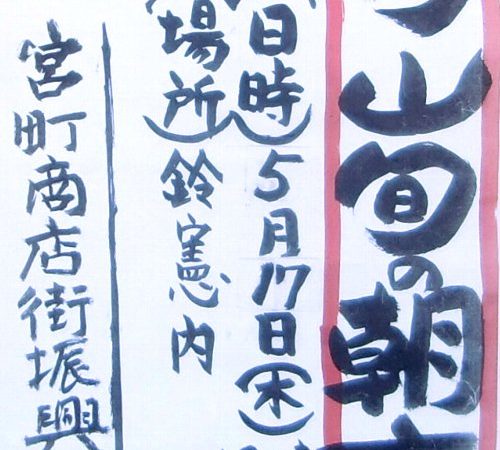 山旬の朝市
(日時)5月17日(木)
(場所)鈴憲内
宮町商店街振興